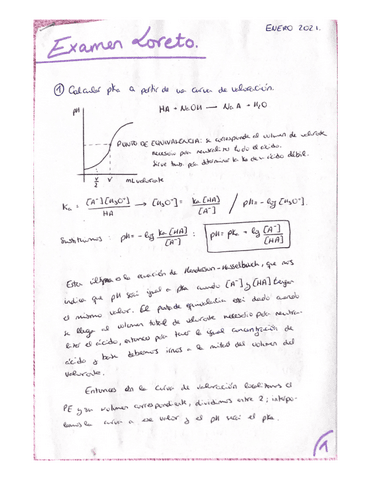 ENERO 2021.
Examen Loreto.
① Calcular pka a partir de una curva de valoración.
HA + NaOH → NaA + H₂O
pH
PUNTO DE EQUIVALENCIA: se corresponde al volumen de valorante
necesario para neutralizar todo el ácido.
Sirve para determinar la Ka de un ácido débil.
V/2 V mL valorante
Ka = [A⁻][H₃O⁺] / HA → [H₃O⁺] = Ka [HA] / [A⁻] / pH = - lg [H₃O⁺]
Sustituimos: pH = - lg Ka [HA] / [A⁻] : pH = pKa + log [A⁻] / [HA]
Esta última es la ecuación de Henderson-Hasselbach, que nos
indica que pH será igual a pka cuando [A⁻] y [HA] tengan
el mismo valor. El punto de equivalencia está dado cuando
se llega al volumen total de valorante necesario para neutra-
lizar el ácido, entonces para tener la igual concentración de
ácido y base debemos irnos a la mitad del volumen del
valorante.
Entonces en la curva de valoración localizamos el
PE y su volumen correspondiente, dividimos entre 2; interpo-
lamos la curva a ese valor y el pH será el pka.
1